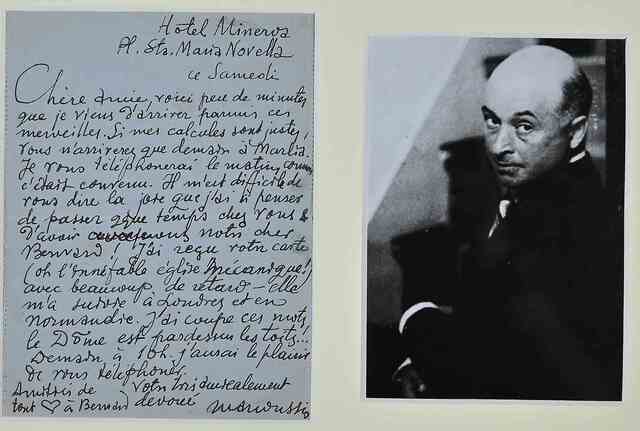 Hôtel Minerva
Pl. Sta. Maria Novella
ce Samedi
Chère amie, voici peu de minutes
que je viens d'arriver parmis ces
merveilles. Si mes calcules sont justes,
vous n'arriverez que demain à Marlia.
Je vous téléphonerai le matin, comme
c'était convenu. Il m'est difficile de
vous dire la joie que j'ai à penser
de passer qque temps chez vous &
d'avoir notre cher
Bernard! J'ai reçu votre carte
(oh l'innéfable église mécanique!)
avec beaucoup de retard – elle
m'a suivie à Londres et en
Normandie. J'ai coupé ces mots
le Dôme est pardessus les toits!!
Demain à 10h. j'aurai le plaisir
de vous téléphoner.
Amitiés de votre
tout ♡ à Bernard devoué